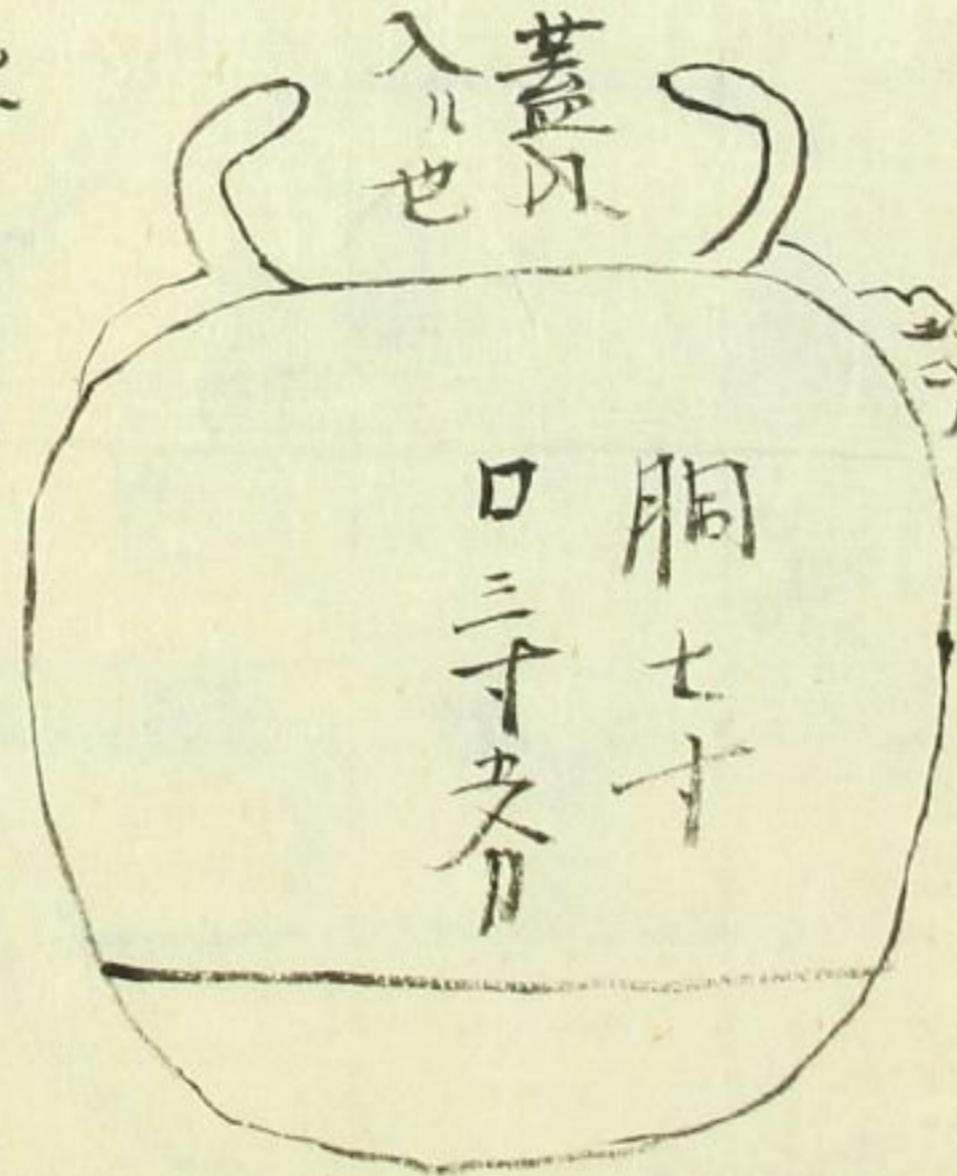 蓋内
入ル也
胴七寸
口三寸五分